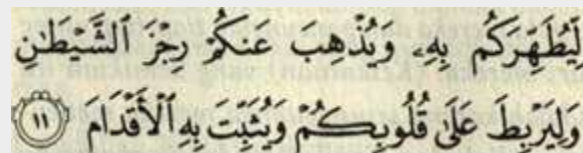 لِّيُطَهِّرَكُم بِهِۦ وَيُذْهِبَ عَنكُمْ رِجْزَ ٱلشَّيْطَٰنِ
وَلِيَرْبِطَ عَلَىٰ قُلُوبِكُمْ وَيُثَبِّتَ بِهِ ٱلْأَقْدَامَ ١١